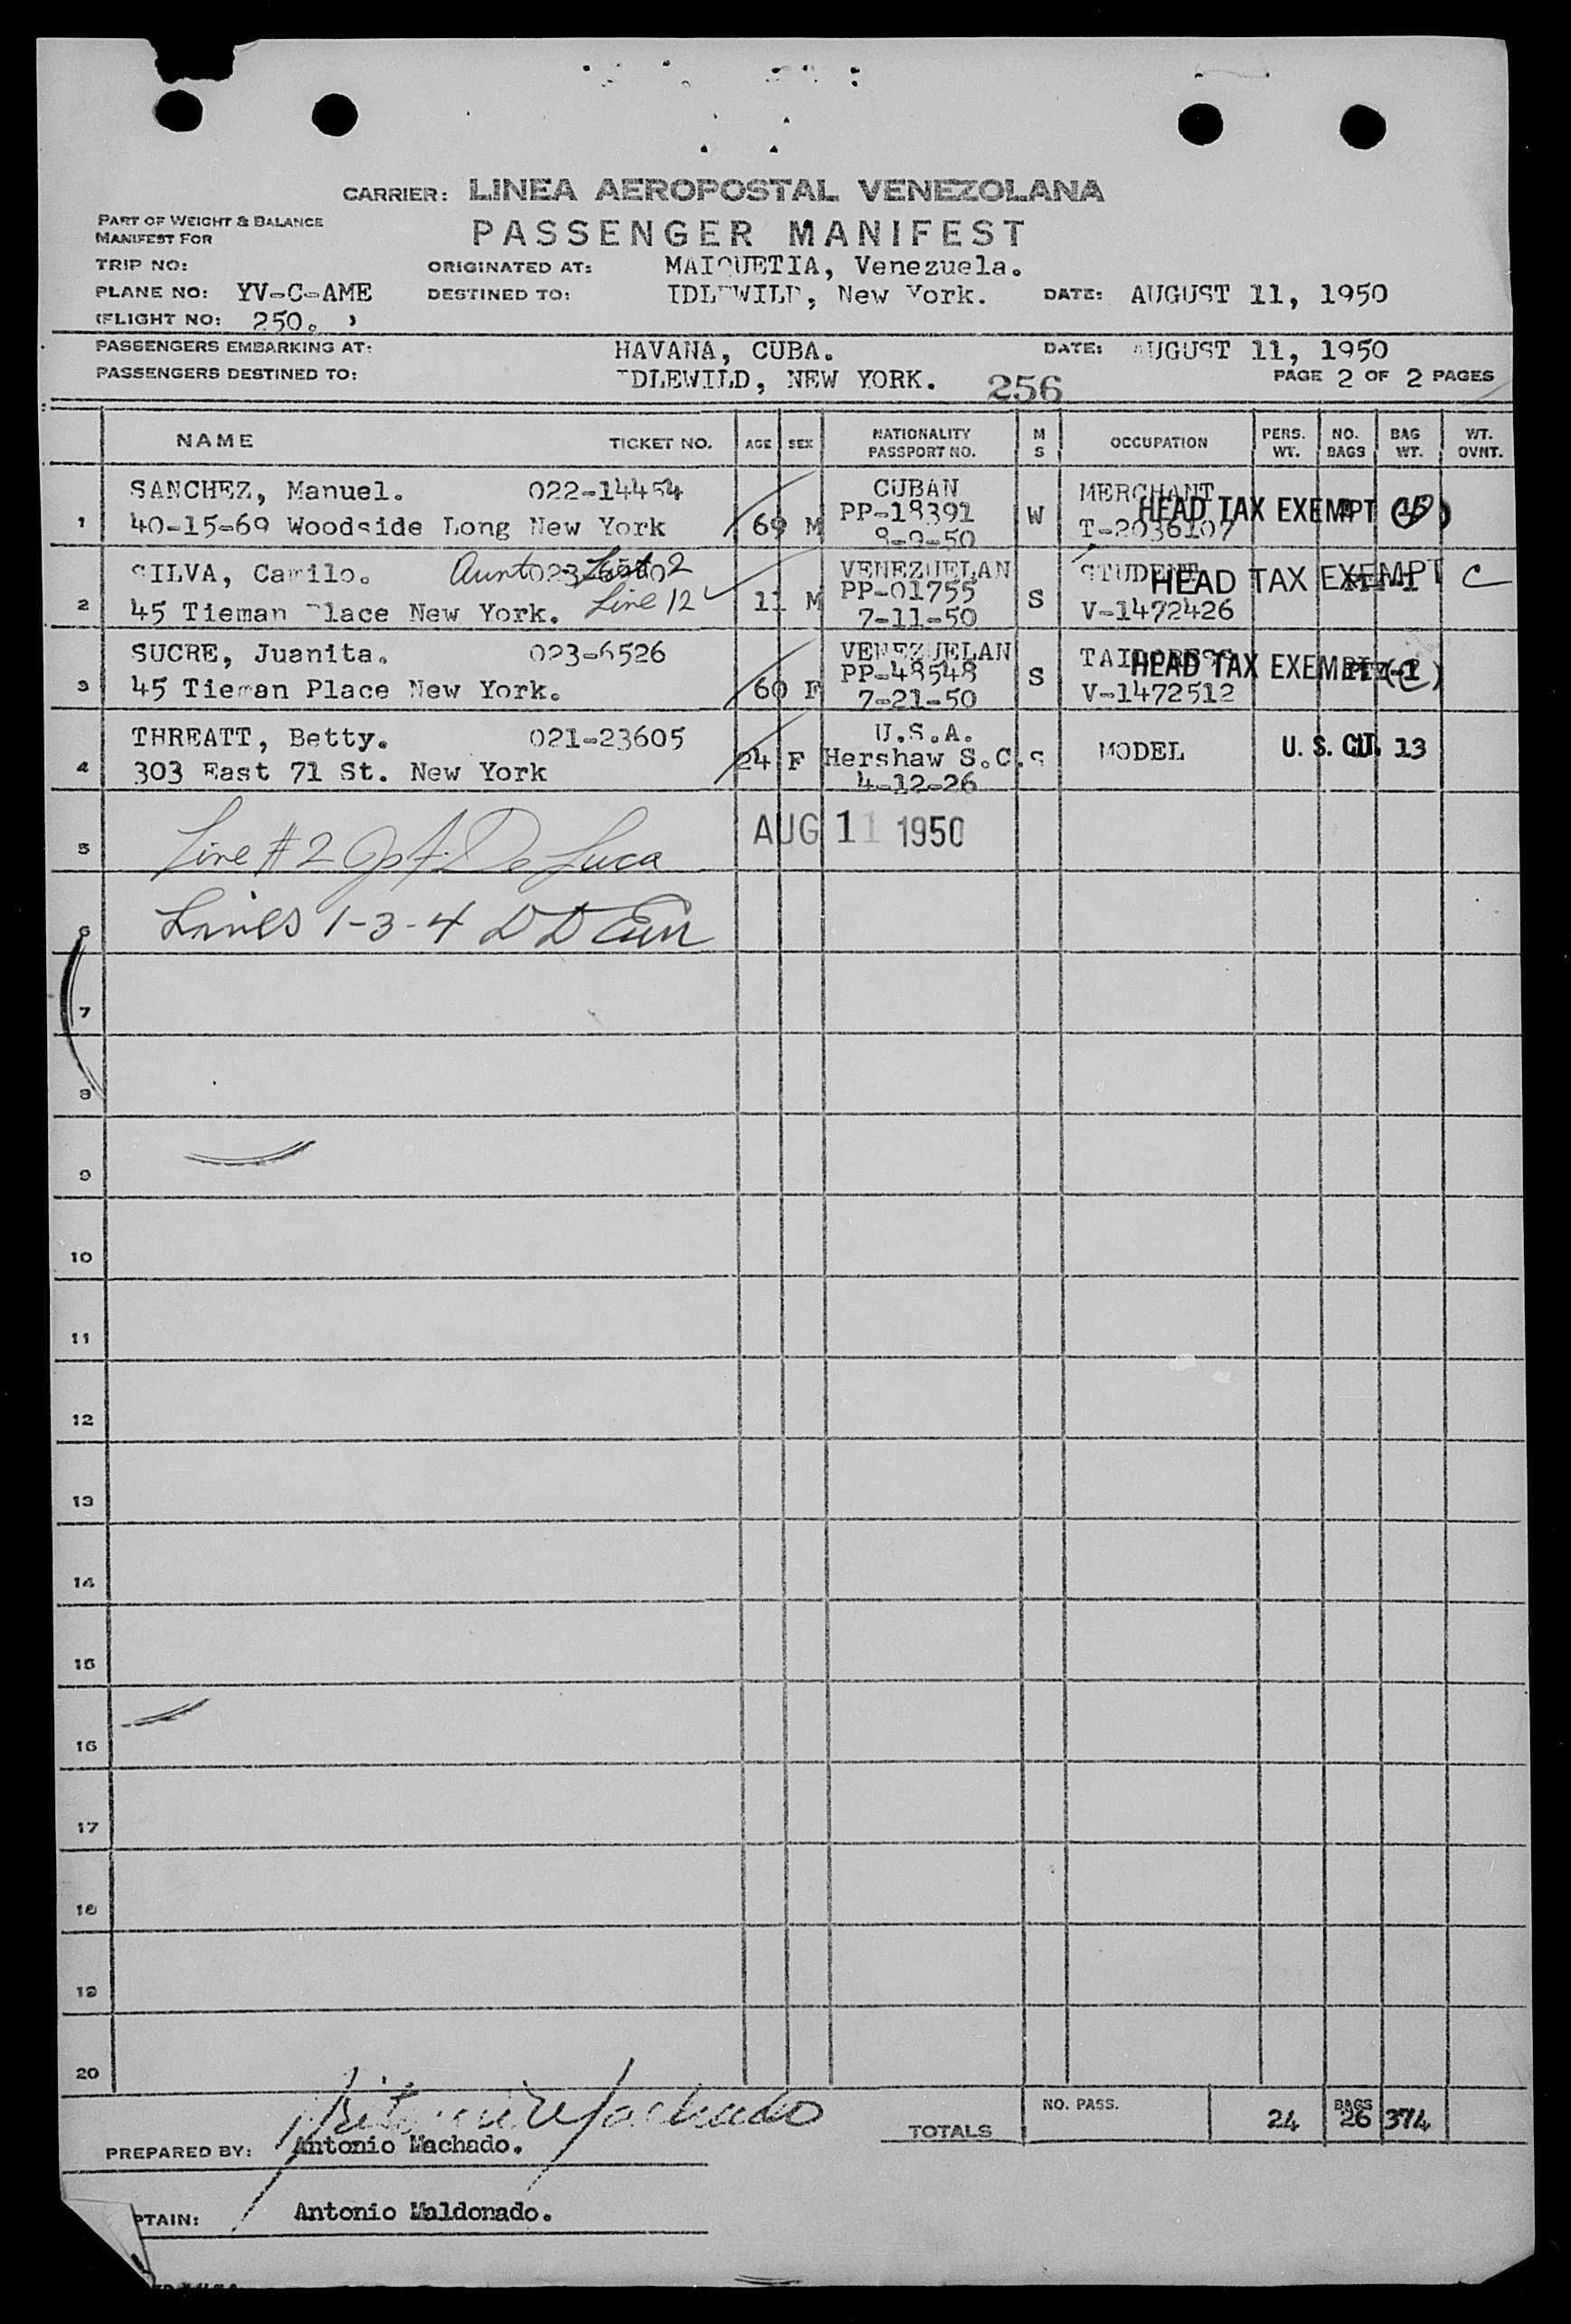 CARRIER: LINEA AEROPOSTAL VENEZOLANA
PART OF WEIGHT & BALANCE
MANIFEST FOR
PASSENGER MANIFEST
TRIP NO:
ORIGINATED AT: MAIQUETIA, Venezuela.
PLANE NO: YV-C-AME
DESTINED TO: IDLEWILD, New York. DATE: AUGUST 11, 1950
FLIGHT NO: 250.
PASSENGERS EMBARKING AT: HAVANA, CUBA. DATE: AUGUST 11, 1950
PASSENGERS DESTINED TO: IDLEWILD, NEW YORK. 256 PAGE 2 OF 2 PAGES
NAME TICKET NO. AGE SEX NATIONALITY PASSPORT NO. M S OCCUPATION PERS. WT. NO. BAGS BAG WT. WT. OVNT.
SANCHEZ, Manuel. 022-14454 CUBAN MERCHANT
1 40-15-69 Woodside Long New York 69 M PP-18391 W T-2036107 HEAD TAX EXEMPT
9-9-50
SILVA, Camilo. Aunt List 2 VENEZUELAN STUDENT
2 45 Tieman Place New York. Line 12 11 M PP-01755 S V-1472426 HEAD TAX EXEMPT C
7-11-50
SUCRE, Juanita. 023-6526 VENEZUELAN
3 45 Tieman Place New York. 60 F PP-48548 S V-1472512 HEAD TAX EXEMPT (C)
7-21-50
THREATT, Betty. 021-23605 U.S.A.
4 303 East 71 St. New York 24 F Hershaw S.C. S MODEL U. S. CIT. 13
4-12-26
5 Line #2 De Luca AUG 11 1950
6 Lines 1-3-4 D D
7
8
9
10
11
12
13
14
15
16
17
18
19
20
TOTALS NO. PASS. 24 BAGS 26 374
PREPARED BY: Antonio Machado.
PTAIN: Antonio Maldonado.